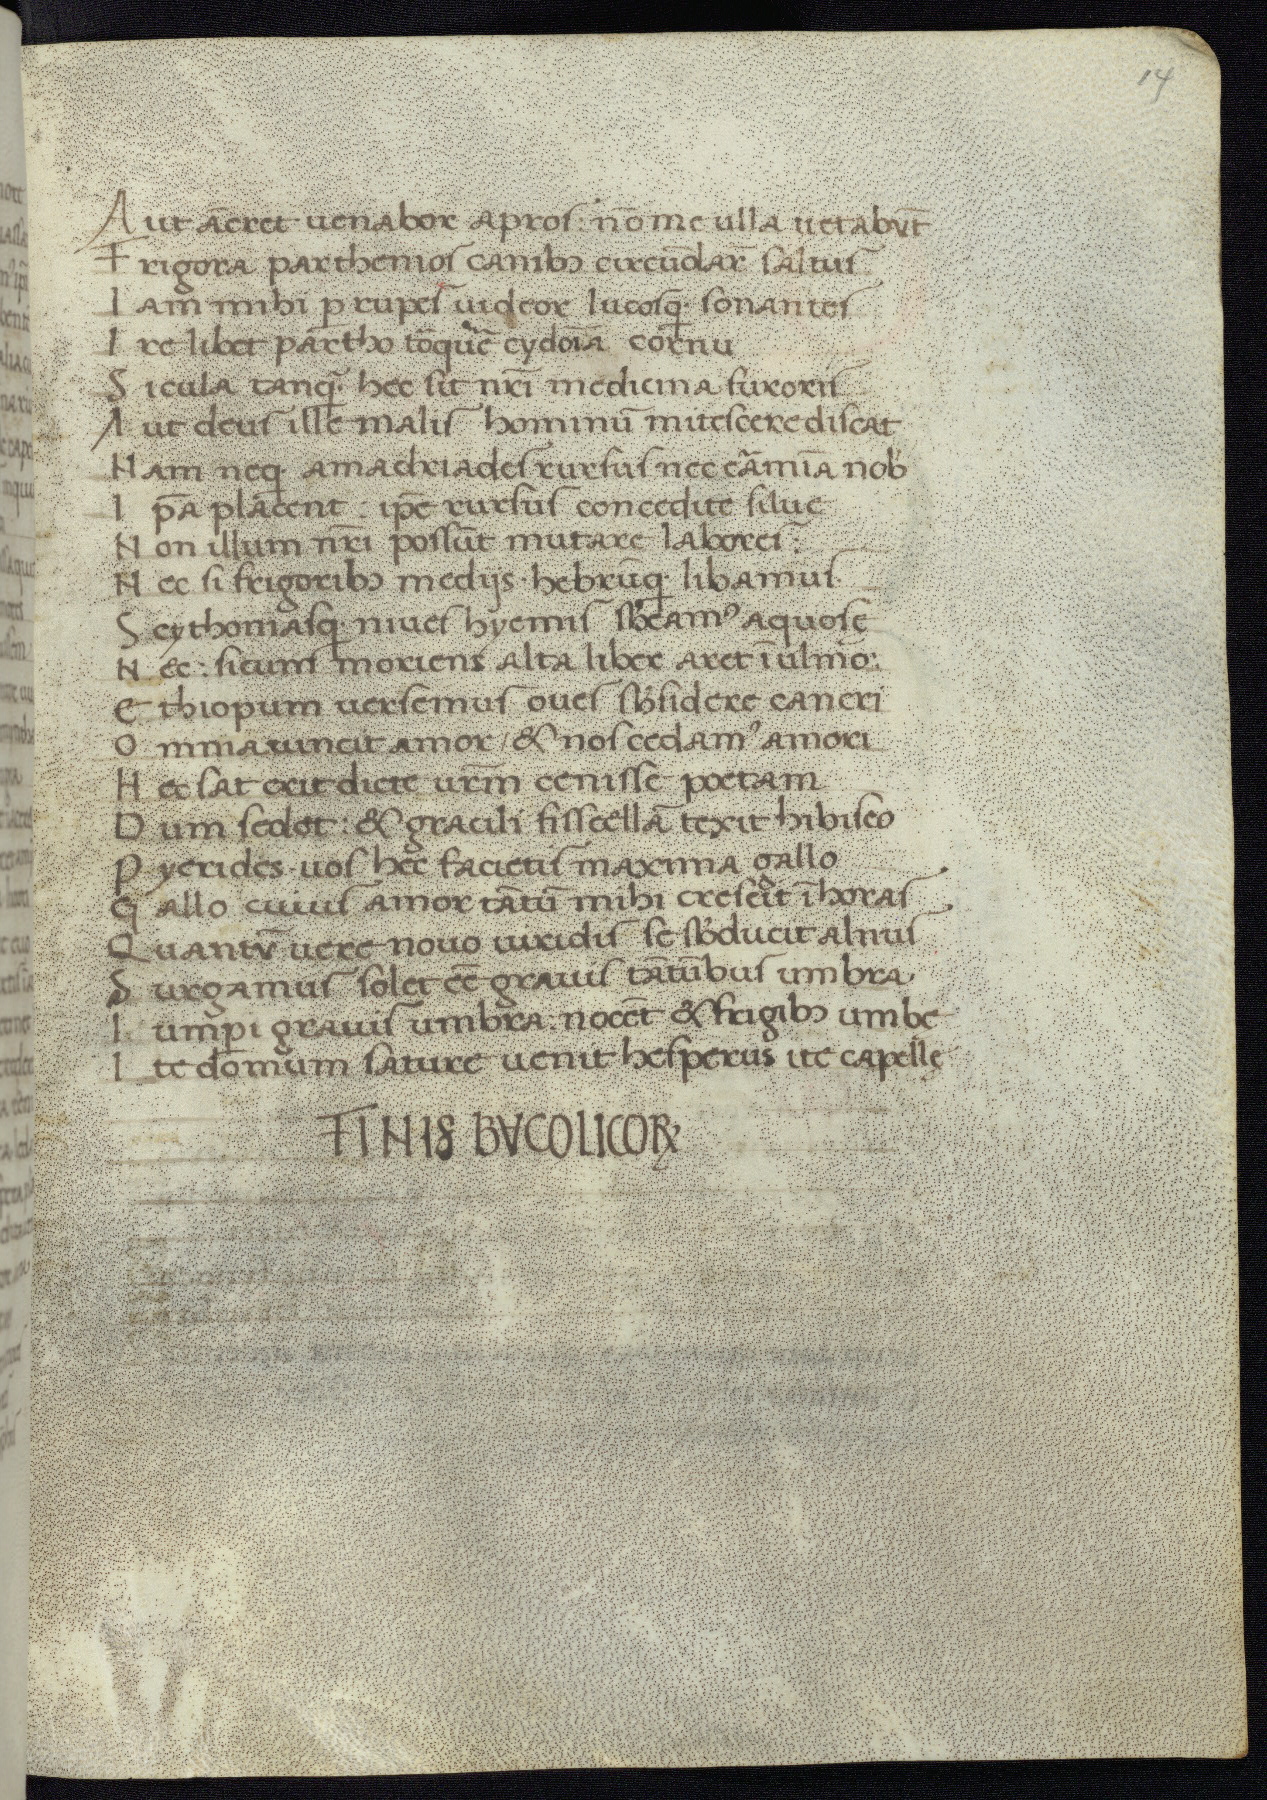 14
Aut ac̄ret uenabor apros: nō me ulla uetabūt
Frigora parthenios canibꝫ circūdar̄ saltus
Iam mihi ꝑ rupes uideor lucosqꝫ sonantes
Ire libet parthō tōquē̄ cydōia cornu
Sicula tanqꝫ hec sit nr̄i medicina furoris
Aut deus ille malis hominū mitescere discat
Nam neqꝫ amadriades rursus nec cāmīa nob̄
Ipa̅ placent: ipē rursus concedite silue
Non illum nr̄i possūt mutare labores:
Nec si frigoribꝫ medijs hebrūqꝫ libamus
Scythoniasqꝫ niues hyemis sb̄eamꝰ aquosę
Nec: sicum moriens alta liber aret ī ulmo:
Ethiopum uersemus oues sb̄ sidere cancri
Omnia uincit amor / & nos cedamꝰ amori
Hec sat erit diciē ur̄m cenisse poetam
Dum sedet: & gracili fiscellā texit hibisco
Pyerides uos hec facietis maxima gallo
Gallo cuius amor tātū mihi crescit ī horas
Quantū uere nouo uiridis se sb̄ducit alnus
Surgamus solet eē grauis tātībus umbra
Iumpi grauis umbra: nocēt & frigibꝫ umbe
Ite domum sature uenit hesperus ite capellę
FINIS BVCOLICOꝜ